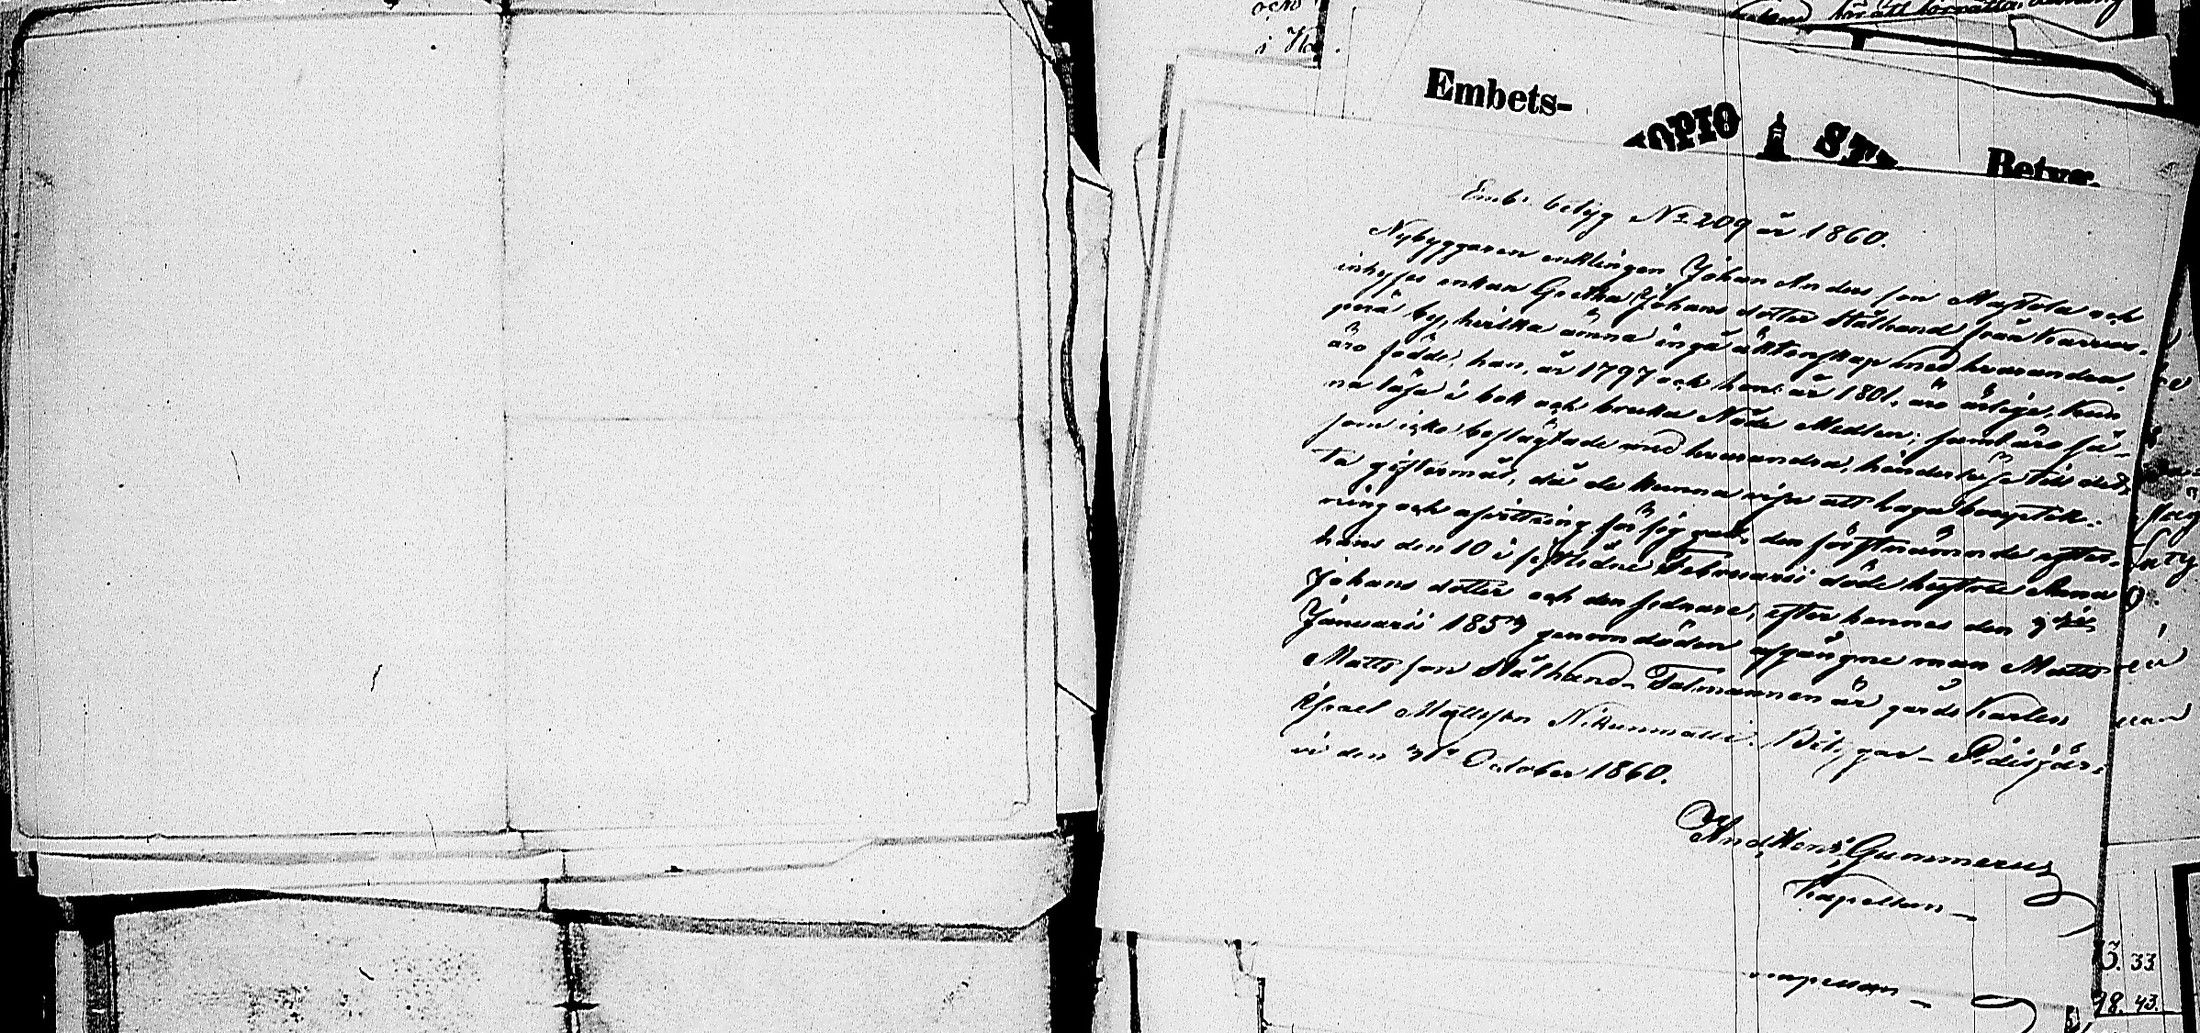 och
i
Embets-
OPIO ST
Betyg.
Emb. betyg No 209 år 1860.
Nybyggaren enklingen Johan Anders son Mattola och
inhyses enkan Gretha Johans dotter Stålhand från
perä by, hvilka ämna ingå äktenskap med hvarandra,
äro födde, han, år 1797 och hon, år 1801, äro ärlige, kun
na läsa i bok och bruka Nåde Medlen; samt äro så-
som icke beslägtade med hvarandra, hinderslösa till det-
ta giftermål, då de kunna visa att laga bouptek-
ning och afvittring för sig gått, den förstnämnde efter
hans den 10 i sistlidne Februarii döde hustru Anna
Johans dotter och den sednare, efter hennes den 9de
Januarii 1857 genom döden afgångne man Matts
Matts son Stålhand. Talmannen är gårdskarlen
Israel Mattsson. Betygar - Pidisjär-
vi den 31 October 1860.
And. Gummerus
Kapellan
Kapellan
3. 33
28. 43.